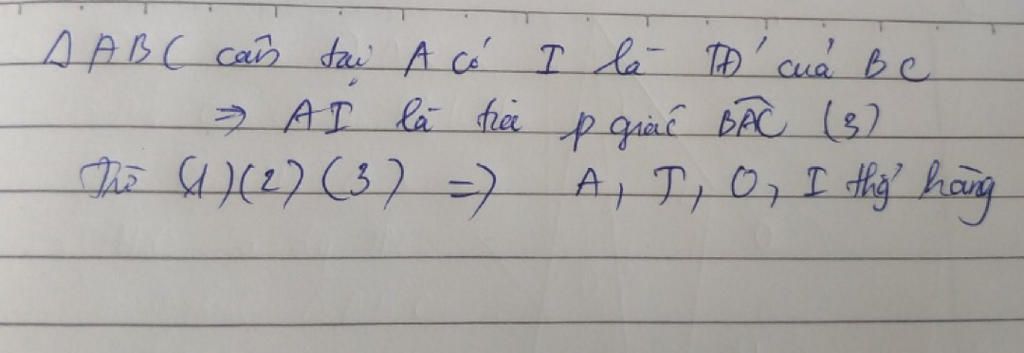 ΔABC cân tại A có I là TĐ của BC
⇒ AI là tia p giác BAC (3)
Từ (1)(2)(3) => A, T, O, I thg hàng